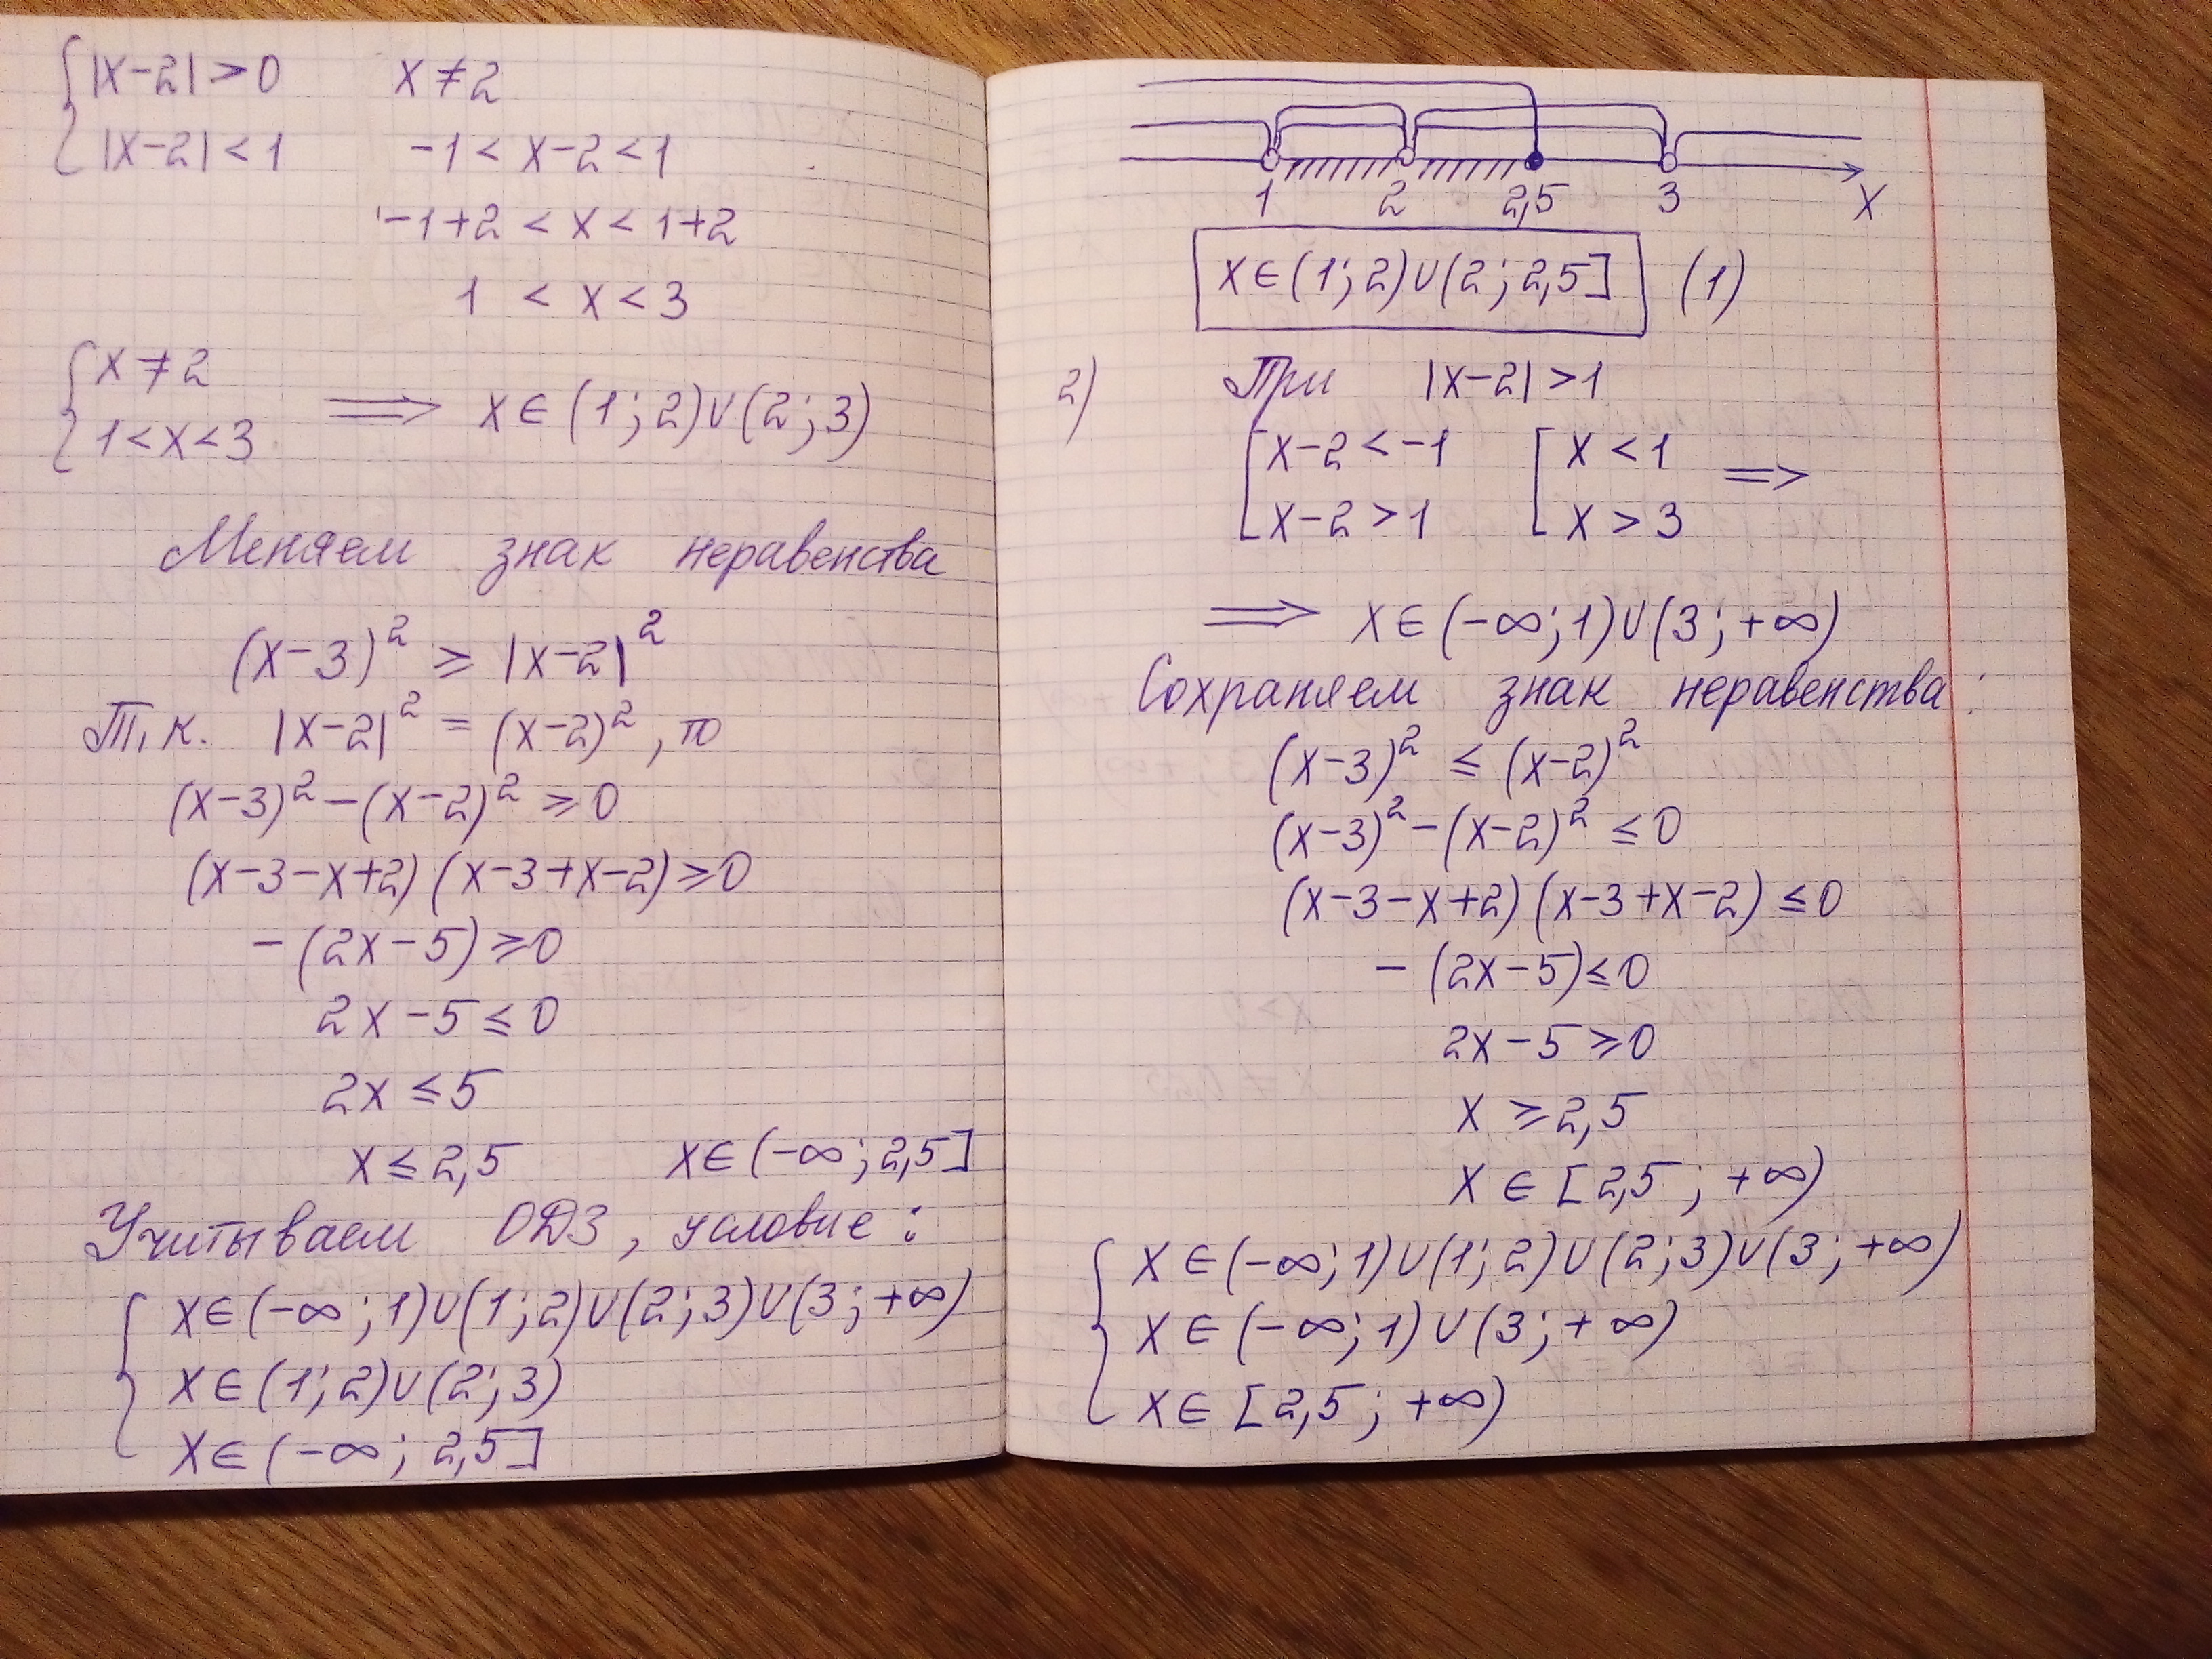 |x-2|>0 x≠2
|x-2|<1 -1<x-2<1
-1+2<x<1+2
1<x<3
x≠2
1<x<3 ⟹ x∈(1;2)∪(2;3)
Меняем знак неравенства
(x-3)² ≥ |x-2|²
Т.к. |x-2|² = (x-2)², то
(x-3)²-(x-2)² ≥0
(x-3-x+2)(x-3+x-2)≥0
-(2x-5)≥0
2x-5≤0
2x≤5
x≤2,5 x∈(-∞;2,5]
Учитываем ОДЗ, условие:
x∈(-∞;1)∪(1;2)∪(2;3)∪(3;+∞)
x∈(1;2)∪(2;3)
x∈(-∞;2,5]
1 2 2,5 3 x
x∈(1;2)∪(2;2,5] (1)
2) При |x-2|>1
x-2<-1 x<1 ⟹
x-2>1 x>3
⟹ x∈(-∞;1)∪(3;+∞)
Сохраняем знак неравенства:
(x-3)² ≤ (x-2)²
(x-3)²-(x-2)² ≤0
(x-3-x+2)(x-3+x-2)≤0
-(2x-5)≤0
2x-5≥0
x≥2,5
x∈[2,5;+∞)
x∈(-∞;1)∪(1;2)∪(2;3)∪(3;+∞)
x∈(-∞;1)∪(3;+∞)
x∈[2,5;+∞)